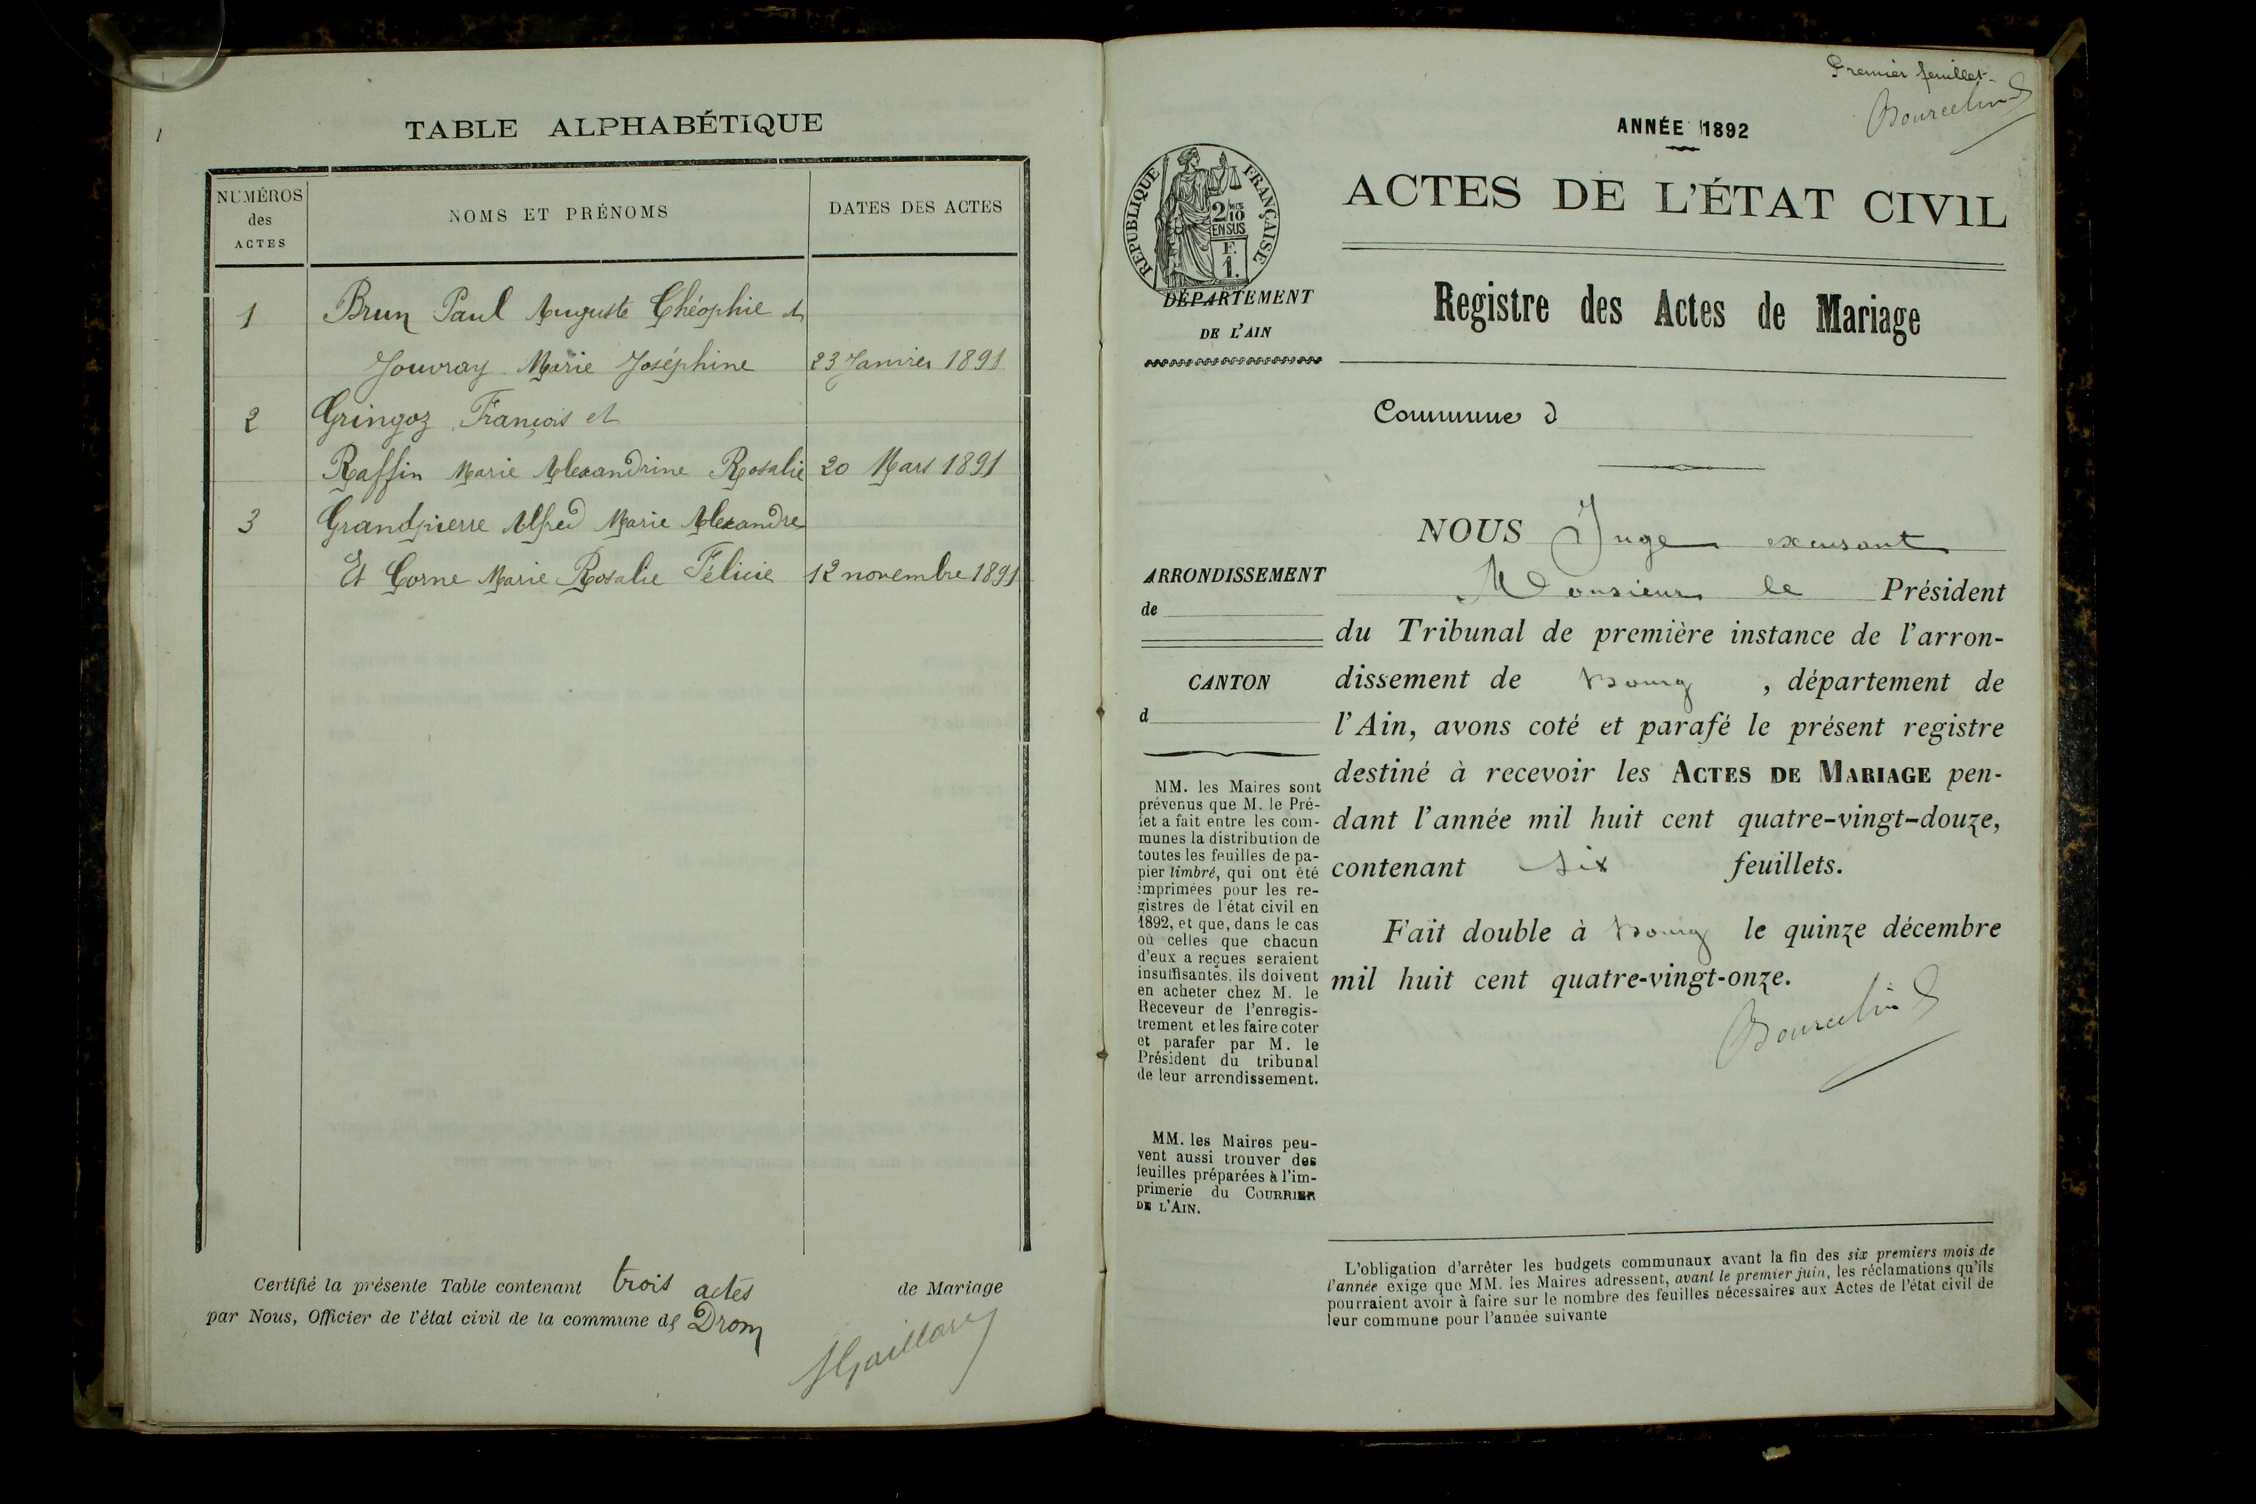 1
TABLE ALPHABÉTIQUE
NUMÉROS
des
ACTES
NOMS ET PRÉNOMS
DATES DES ACTES
1 Brun Paul Auguste Théophie et
Jouvray Marie Joséphine 23 Janvier 1891
2 Gringoz François et
Raffin Marie Alexandrine Rosalie 20 Mars 1891
3 Grandpierre Alfred Marie Alexandre
Et Corne Marie Rosalie Félicie 12 novembre 1891
Certifié la présente Table contenant trois actes de Mariage
par Nous, Officier de l'état civil de la commune de Drom
Gaillard
Premier feuillet.
Bourcelin
ANNÉE 1892
RÉPUBLIQUE FRANÇAISE
2/10
EN SUS
F.
1.
DÉPARTEMENT
DE L'AIN
ACTES DE L'ÉTAT CIVIL
Registre des Actes de Mariage
Commune d
ARRONDISSEMENT
de
CANTON
d
MM. les Maires sont
prévenus que M. le Pré-
fet a fait entre les com-
munes la distribution de
toutes les feuilles de pa-
pier timbré, qui ont été
imprimées pour les re-
gistres de l'état civil en
1892, et que, dans le cas
où celles que chacun
d'eux a reçues seraient
insuffisantes, ils doivent
en acheter chez M. le
Receveur de l'enregis-
trement et les faire coter
et parafer par M. le
Président du tribunal
de leur arrondissement.
MM. les Maires peu-
vent aussi trouver des
feuilles préparées à l'im-
primerie du COURRIER
DE L'AIN.
NOUS Juge excusant
Monsieur le Président
du Tribunal de première instance de l'arron-
dissement de Bourg , département de
l'Ain, avons coté et parafé le présent registre
destiné à recevoir les ACTES DE MARIAGE pen-
dant l'année mil huit cent quatre-vingt-douze,
contenant six feuillets.
Fait double à Bourg le quinze décembre
mil huit cent quatre-vingt-onze.
Bourcelin
L'obligation d'arrêter les budgets communaux avant la fin des six premiers mois de
l'année exige que MM. les Maires adressent, avant le premier juin, les réclamations qu'ils
pourraient avoir à faire sur le nombre des feuilles nécessaires aux Actes de l'état civil de
leur commune pour l'année suivante